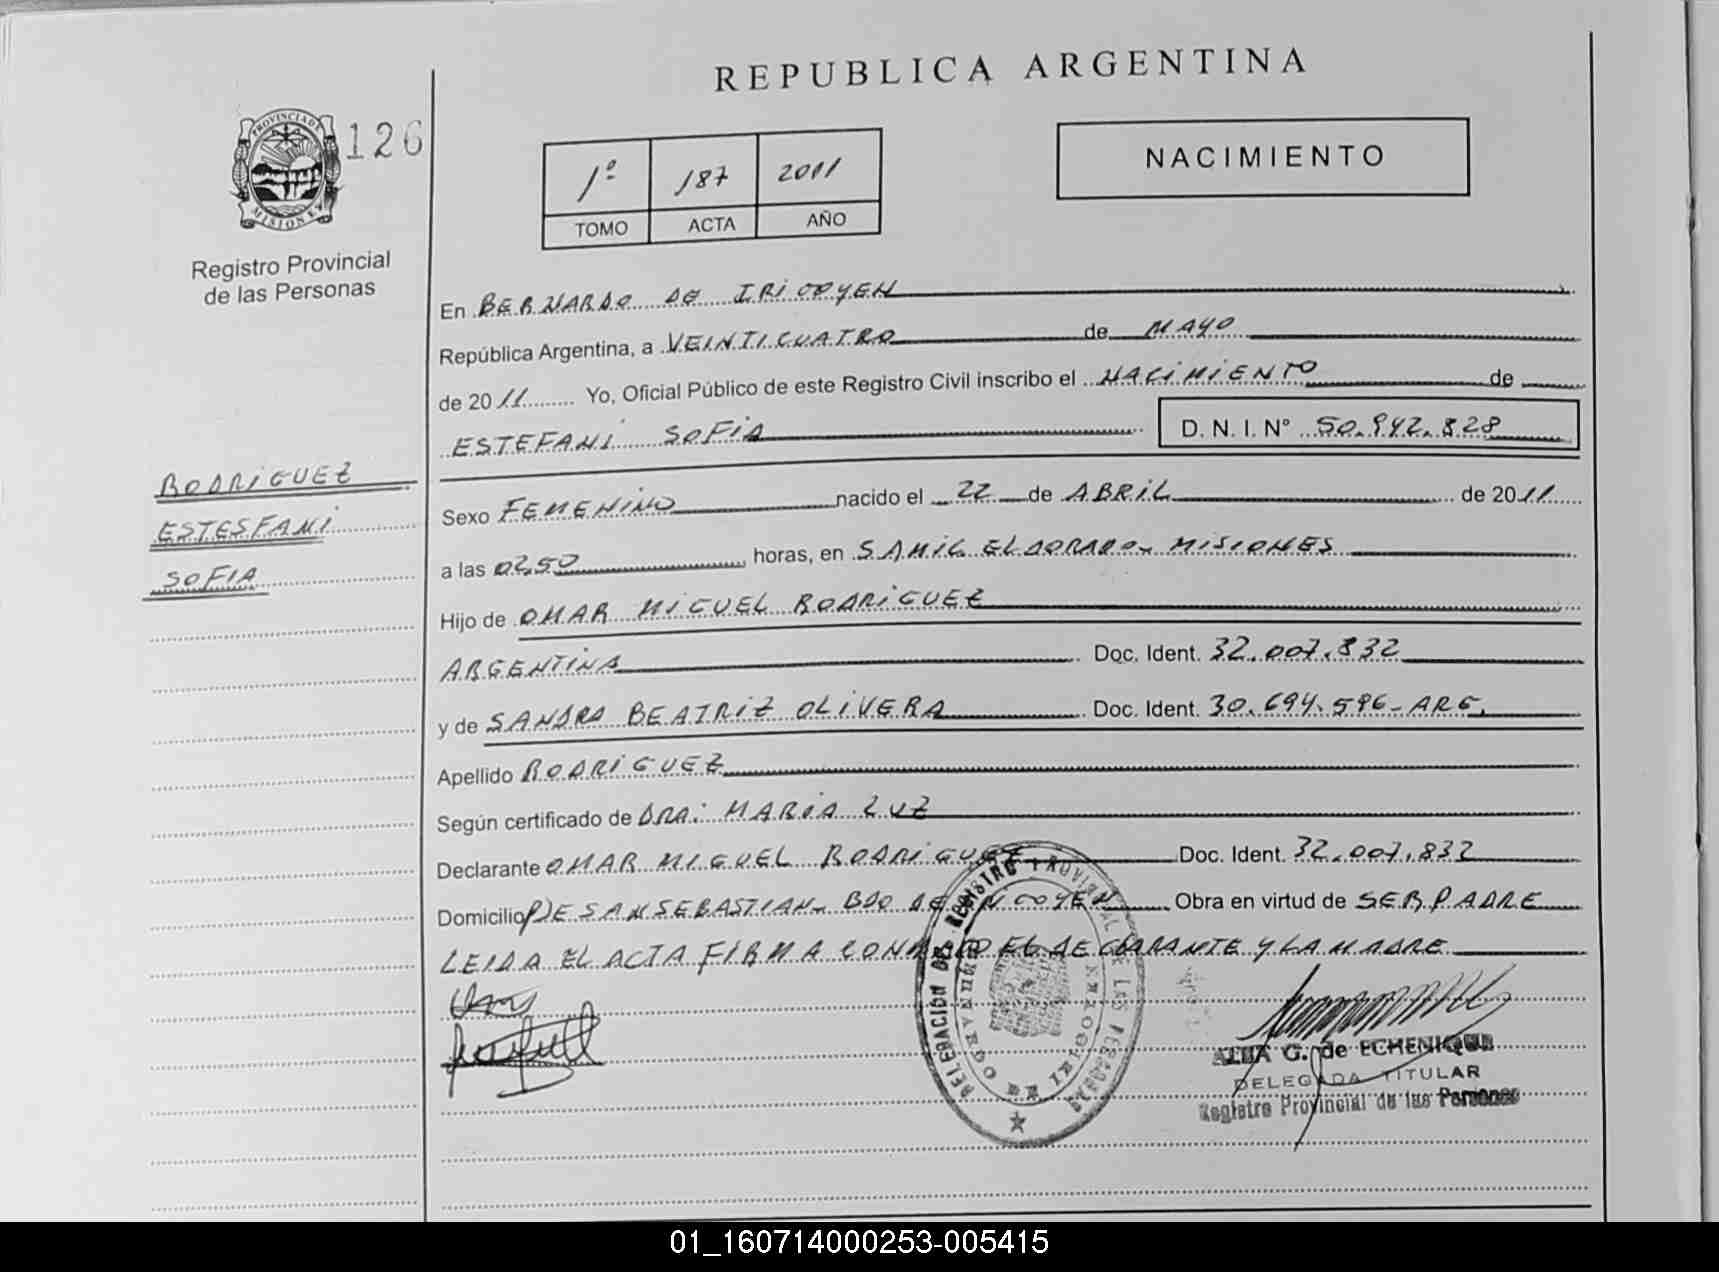 REPUBLICA ARGENTINA
PROVINCIA DE
MISIONES
126
Registro Provincial
de las Personas
1º 187 2011
TOMO ACTA AÑO
NACIMIENTO
En BERNARDO DE IRIGOYEN
República Argentina, a VEINTICUATRO de MAYO
de 2011 Yo, Oficial Público de este Registro Civil inscribo el NACIMIENTO de
ESTEFANI SOFIA D. N. I. N° 50.942.828
RODRIGUEZ
ESTESFANI
SOFIA
Sexo FEMENINO nacido el 22 de ABRIL de 2011
a las 02,50 horas, en SAMIC ELDORADO- MISIONES
Hijo de OMAR MIGUEL RODRIGUEZ
ARGENTINA Doc. Ident. 32.007.832
y de SANDRA BEATRIZ OLIVERA Doc. Ident. 30.694.596-ARG.
Apellido RODRIGUEZ
Según certificado de DRA: MARIA LUZ
Declarante OMAR MIGUEL RODRIGUEZ Doc. Ident. 32.007.832
Domicilio PJE SAN SEBASTIAN- BDO DE IRIGOYEN Obra en virtud de SER PADRE
LEIDA EL ACTA FIRMA CONMIGO EL DECLARANTE Y LA MADRE
DELEGACION DEL REGISTRO PROVINCIAL DE LAS PERSONAS
BERNARDO DE IRIGOYEN
ALBA G. de ECHENIQUE
DELEGADA TITULAR
Registro Provincial de las Personas
01_160714000253-005415